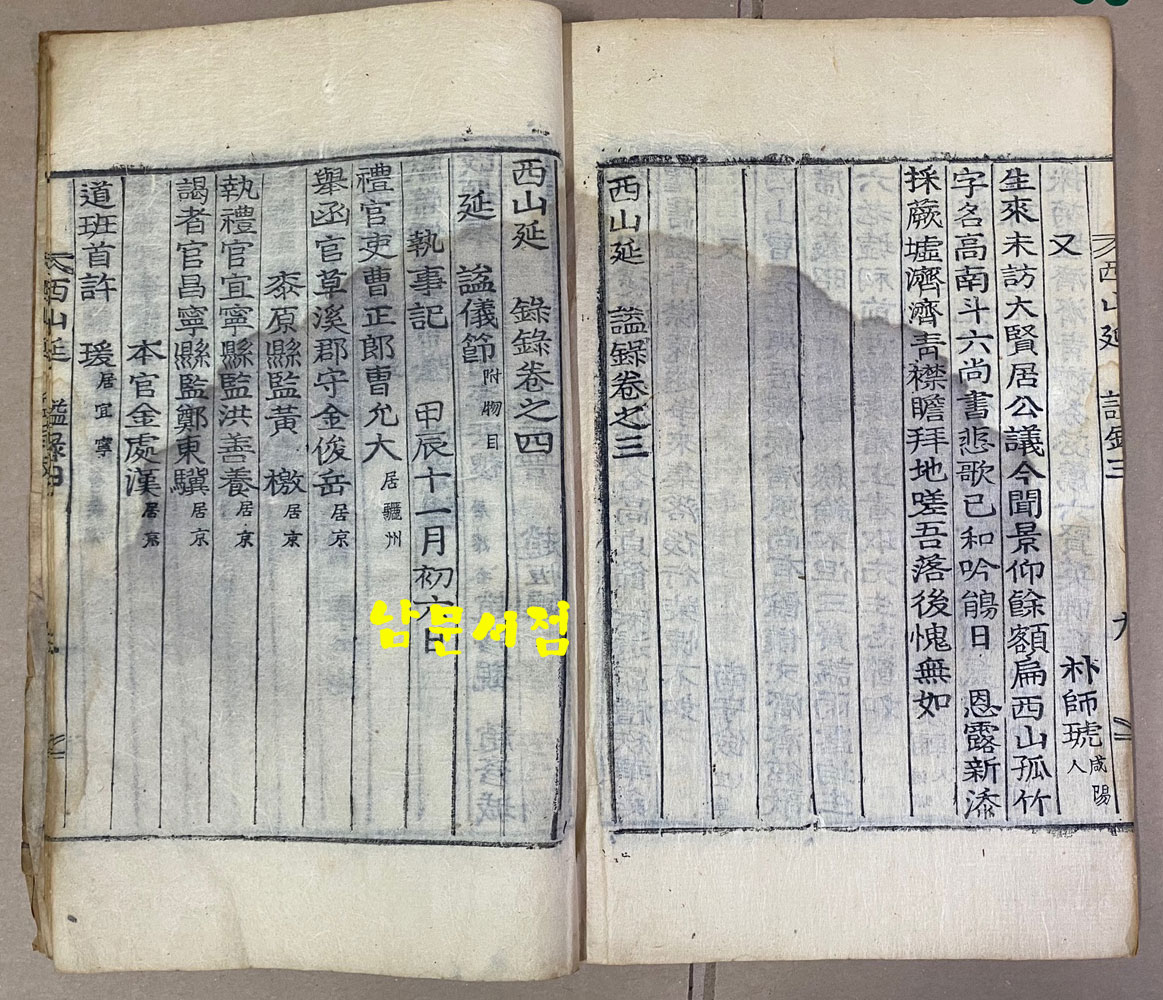 又 朴師琥 咸陽人
生來未訪大賢居公議今聞景仰餘額扁西山孤竹
字名高南斗六尚書悲歌已和吟鵩日 恩露新添
採蕨墟濟濟青襟瞻拜地嗟吾落後愧無如
西山延 諡錄卷之三
西山延 錄錄卷之四
延 諡儀節 附物目
執事記 甲辰十一月初六日
禮官吏曹正郎曹允大 居驪州
舉函官草溪郡守金俊岳 居京
泰原縣監黃檄 居京
執禮官宜寧縣監洪善養 居京
謁者官昌寧縣監鄭東驥 居京
本官金處漢 居京
道班首許瑗 居宜寧
西山延 諡錄三 九
西山延 諡錄四
남문서점